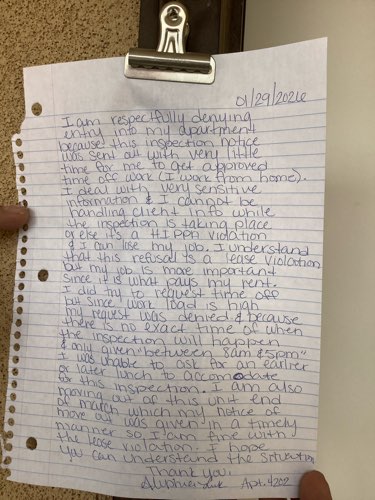 01/29/2026
I am respectfully denying
entry into my apartment
because this inspection notice
was sent out with very little
time for me to get approved
time off work (I work from home).
I deal with very sensitive
information & I cannot be
handling client info while
the inspection is taking place
or else it's a HIPPA violation
& I can lose my job. I understand
that this refusal is a lease violation
but my job is more important
since it is what pays my rent.
I did try to request time off
but since work load is high
my request was denied & because
there is no exact time of when
the inspection will happen
& only given "between 8am & 5pm"
I was unable to ask for an earlier
or later lunch to accomodate
for this inspection. I am also
moving out of this unit end
of march which my notice of
move out was given in a timely
manner so I am fine with
the lease violation. I hope
you can understand the situation
Thank you,
Apt. 4202